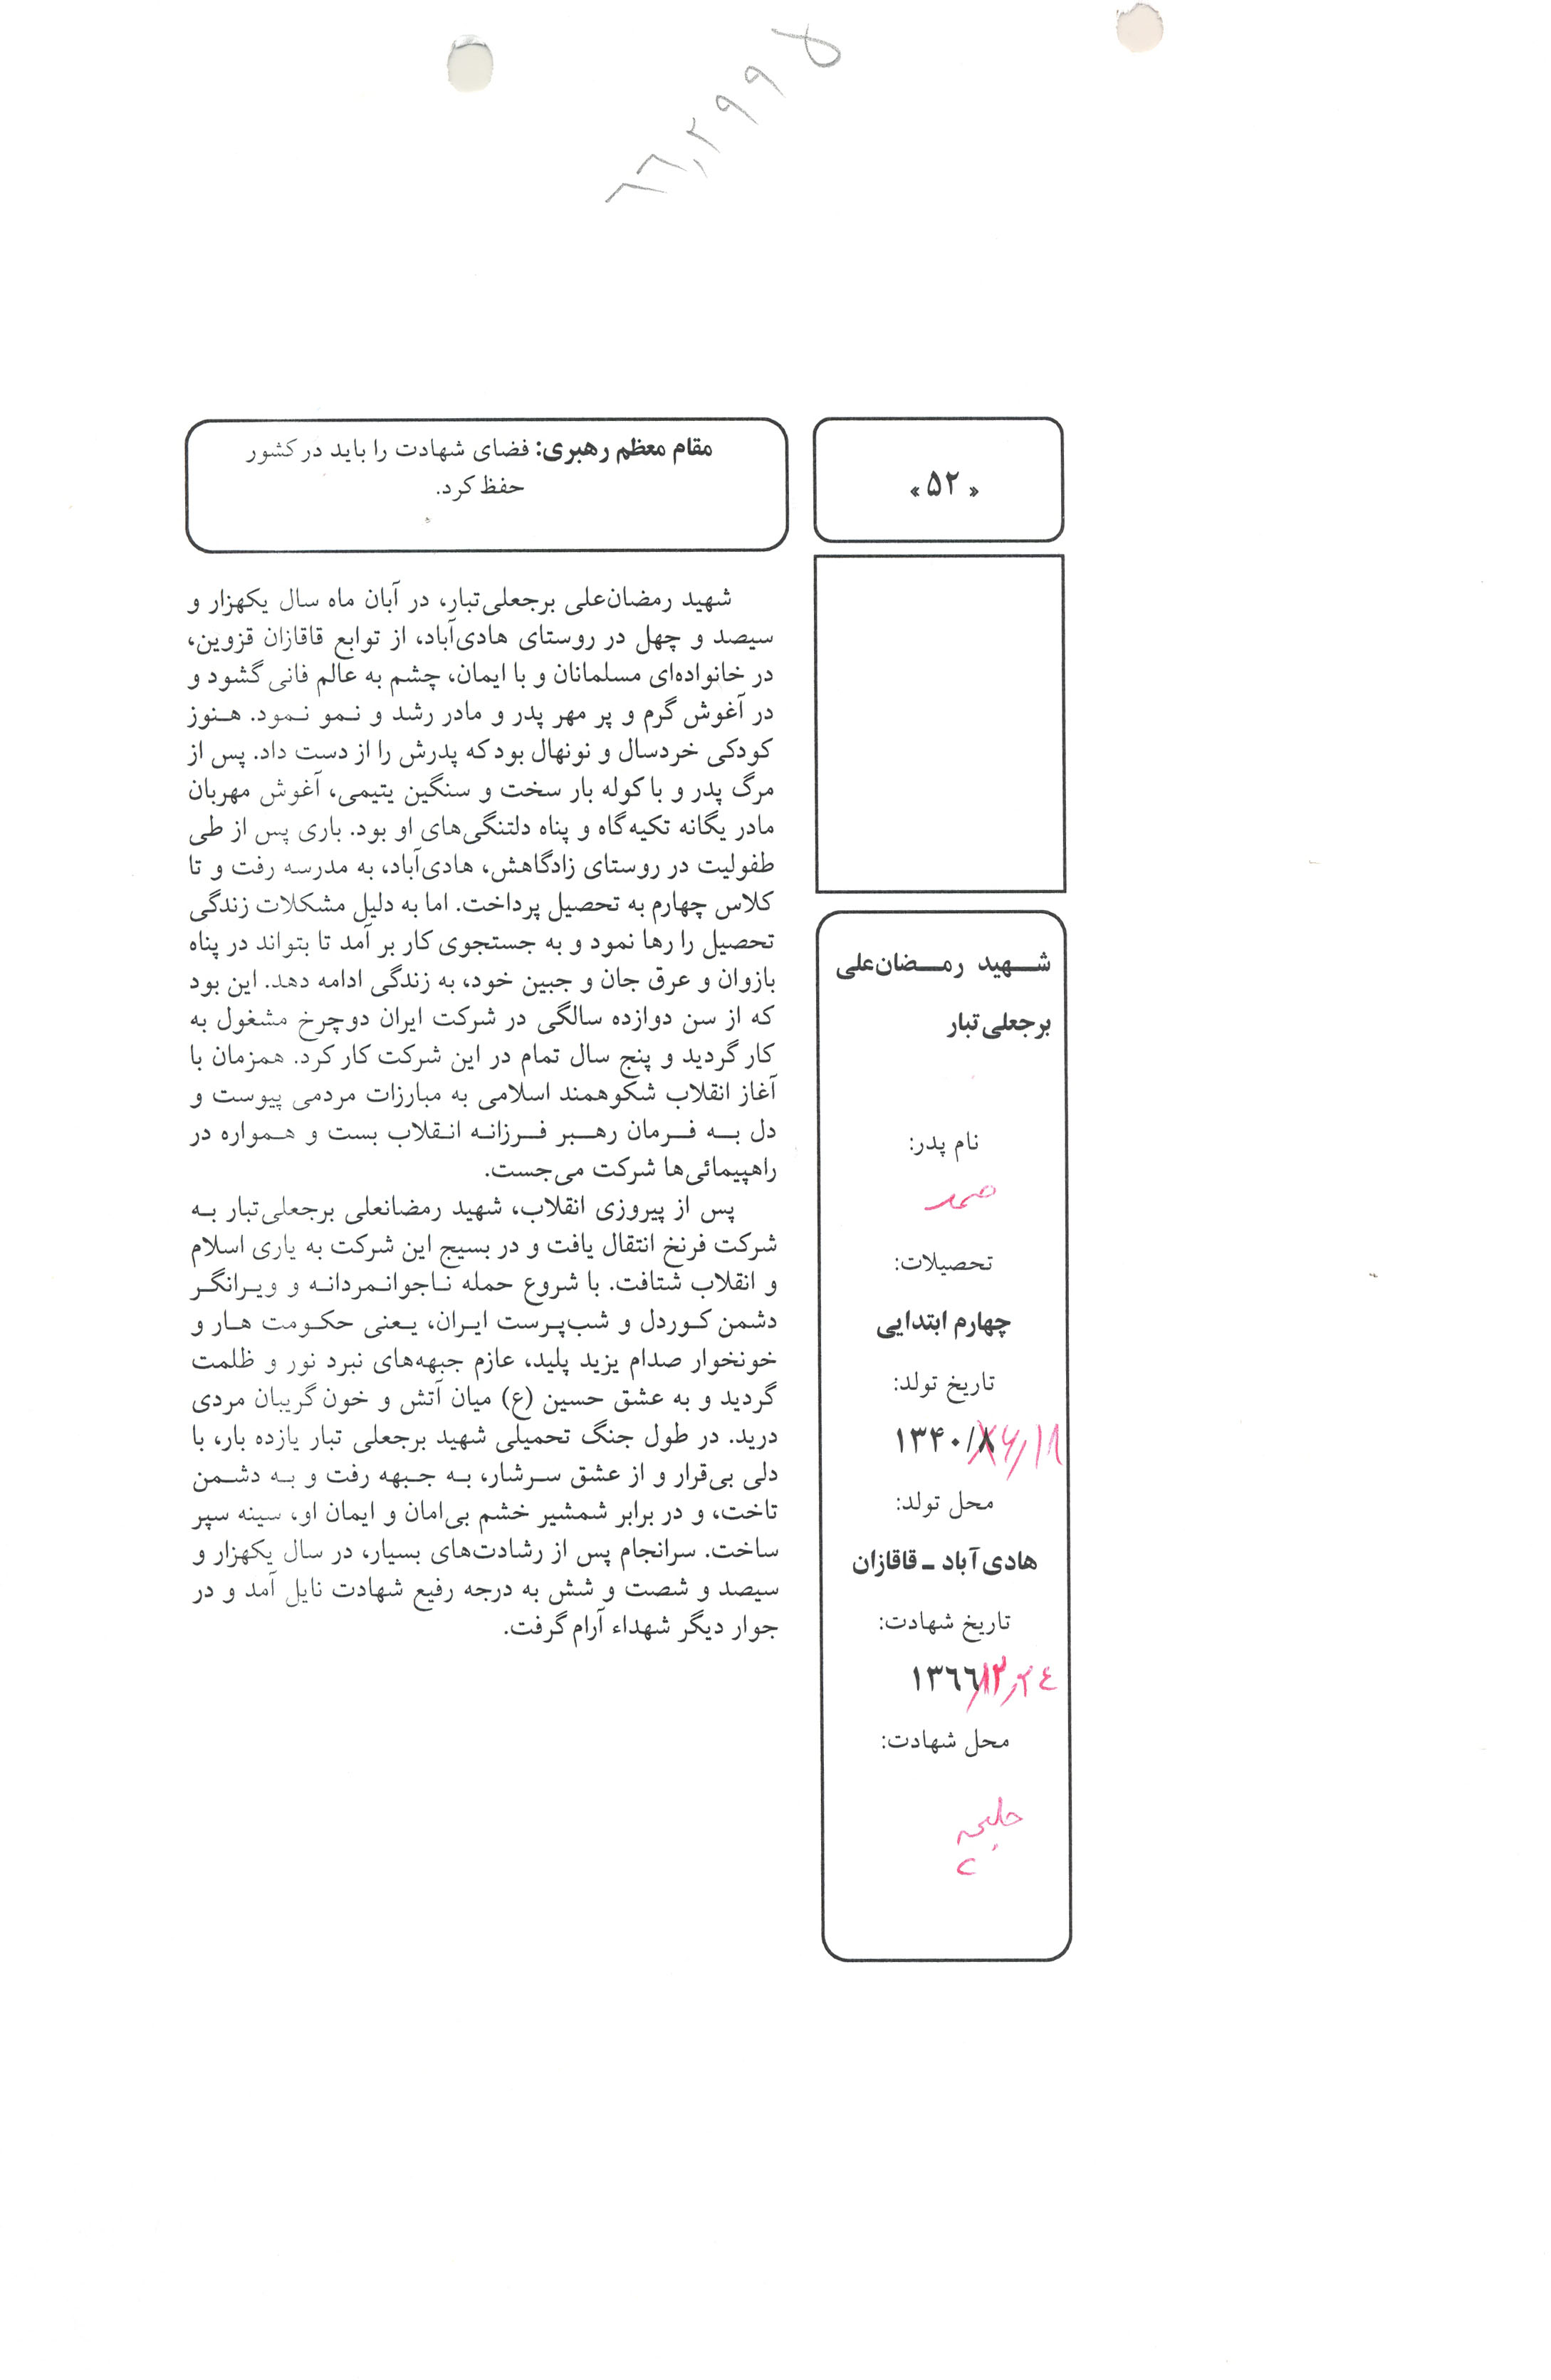 «۵۲»
مقام معظم رهبری: فضای شهادت را باید در کشور
حفظ کرد.
شهید رمضان‌علی
برجعلی‌تبار
نام پدر:
صمد
تحصیلات:
چهارم ابتدایی
تاریخ تولد:
۱۳۴۰/۶/۱۸
محل تولد:
هادی آباد ـ قاقازان
تاریخ شهادت:
۱۳۶۶/۱۲/۲۴
محل شهادت:
شهید رمضان‌علی برجعلی‌تبار، در آبان ماه سال یکهزار و
سیصد و چهل در روستای هادی‌آباد، از توابع قاقازان قزوین،
در خانواده‌ای مسلمانان و با ایمان، چشم به عالم فانی گشود و
در آغوش گرم و پر مهر پدر و مادر رشد و نمو نمود. هنوز
کودکی خردسال و نونهال بود که پدرش را از دست داد. پس از
مرگ پدر و با کوله بار سخت و سنگین یتیمی، آغوش مهربان
مادر یگانه تکیه‌گاه و پناه دلتنگی‌های او بود. باری پس از طی
طفولیت در روستای زادگاهش، هادی‌آباد، به مدرسه رفت و تا
کلاس چهارم به تحصیل پرداخت. اما به دلیل مشکلات زندگی
تحصیل را رها نمود و به جستجوی کار بر آمد تا بتواند در پناه
بازوان و عرق جان و جبین خود، به زندگی ادامه دهد. این بود
که از سن دوازده سالگی در شرکت ایران دوچرخ مشغول به
کار گردید و پنج سال تمام در این شرکت کار کرد. همزمان با
آغاز انقلاب شکوهمند اسلامی به مبارزات مردمی پیوست و
دل به فرمان رهبر فرزانه انقلاب بست و همواره در
راهپیمائی‌ها شرکت می‌جست.
پس از پیروزی انقلاب، شهید رمضانعلی برجعلی‌تبار به
شرکت فرنخ انتقال یافت و در بسیج این شرکت به یاری اسلام
و انقلاب شتافت. با شروع حمله ناجوانمردانه و ویرانگر
دشمن کوردل و شب‌پرست ایران، یعنی حکومت هار و
خونخوار صدام یزید پلید، عازم جبهه‌های نبرد نور و ظلمت
گردید و به عشق حسین (ع) میان آتش و خون گریبان مردی
درید. در طول جنگ تحمیلی شهید برجعلی تبار یازده بار، با
دلی بی‌قرار و از عشق سرشار، به جبهه رفت و به دشمن
تاخت، و در برابر شمشیر خشم بی‌امان و ایمان او، سینه سپر
ساخت. سرانجام پس از رشادت‌های بسیار، در سال یکهزار و
سیصد و شصت و شش به درجه رفیع شهادت نایل آمد و در
جوار دیگر شهداء آرام گرفت.